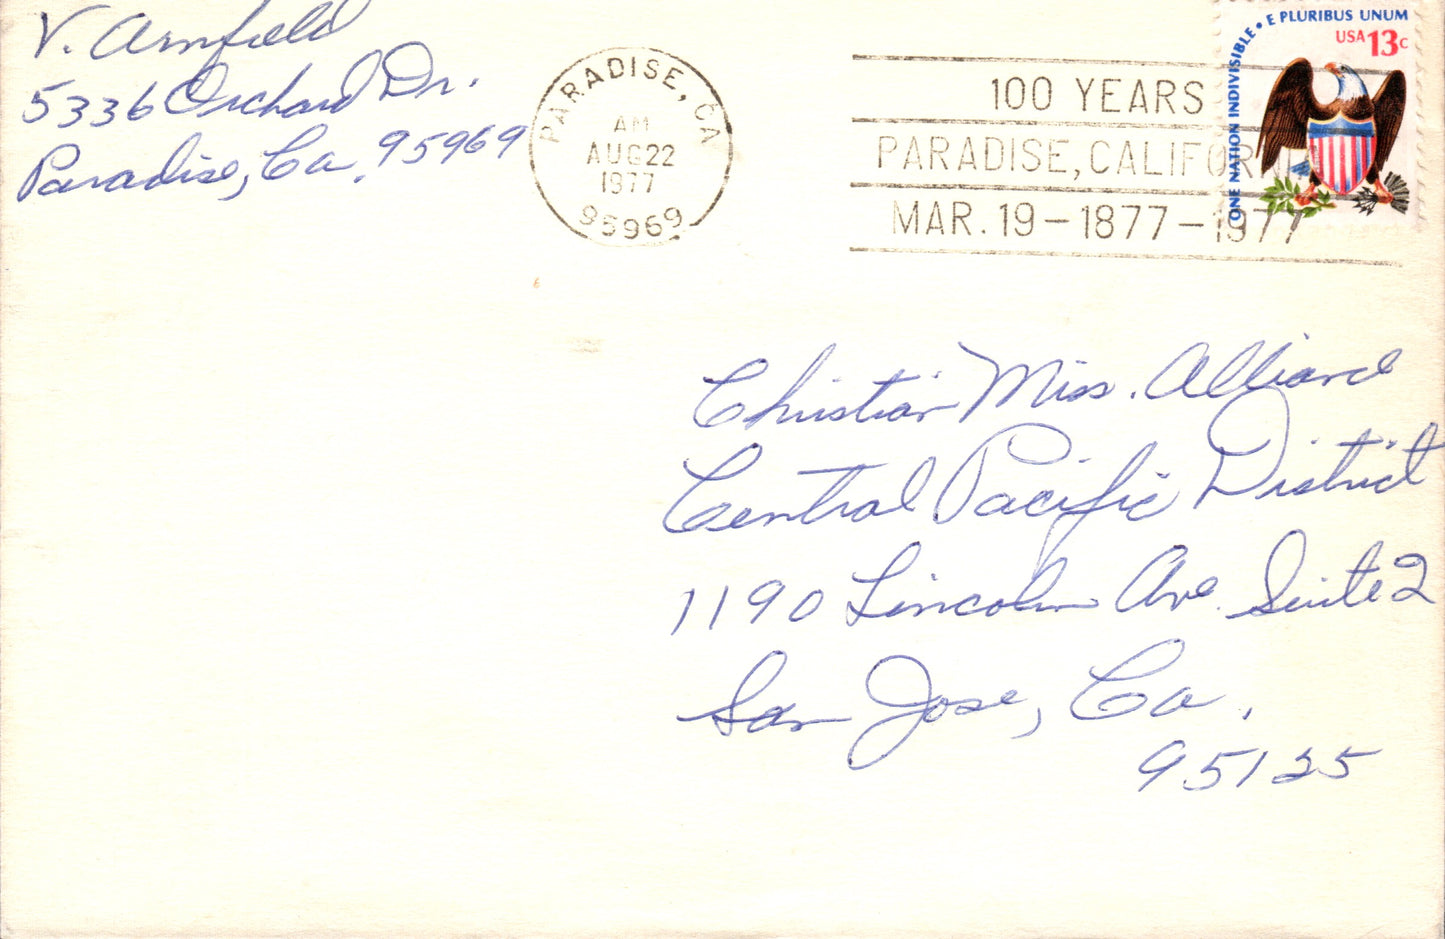 V. Armfield
5336 Orchard Dr.
Paradise, Ca. 95969
PARADISE, CA
AM
AUG 22
1977
95969
100 YEARS
PARADISE, CALIFORNIA
MAR. 19-1877-1977
ONE NATION INDIVISIBLE • E PLURIBUS UNUM
USA 13c
Christian Miss. Alliance
Central Pacific District
1190 Lincoln Ave. Suite 2
San Jose, Ca.
95125